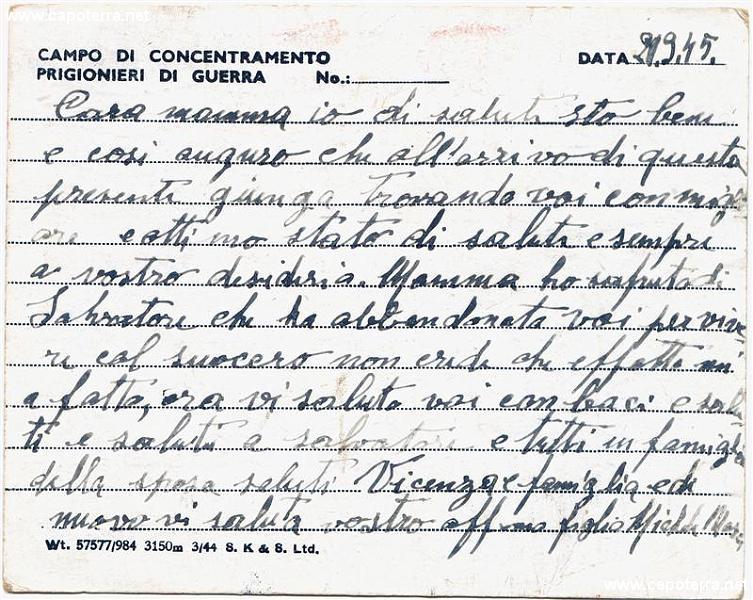 www.capoterra.net
CAMPO DI CONCENTRAMENTO
PRIGIONIERI DI GUERRA No.: DATA 21.9.45.
Cara mamma io di salute sto bene
e cosi auguro che all'arrivo di questa
presente giunga trovando voi con
e ottimo stato di salute e sempre
a vostro desiderio. Mamma ho saputo di
Salvatore che ha abbandonato voi per vive
re col suocero non crede che effetto mi
a fatto, ora vi saluto voi con baci e salu
ti e saluti a salvatore e tutti in famiglia
della sposa saluti Vicenza e famiglia e di
nuovo vi saluta vostro aff.mo figlio
Wt. 57577/984 3150m 3/44 S. K & S. Ltd.
www.capoterra.net